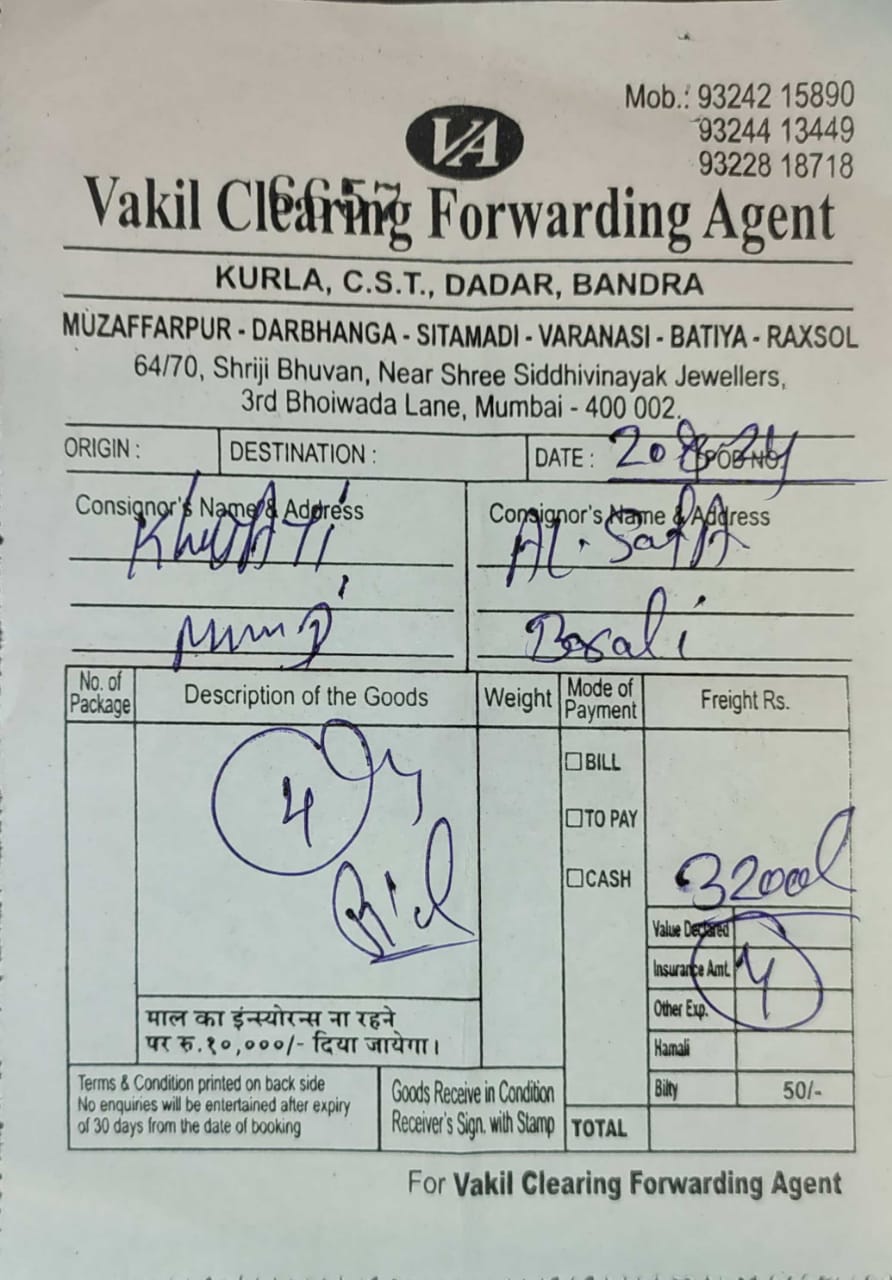 Mob.: 93242 15890
93244 13449
93228 18718
VA
6657
Vakil Clearing Forwarding Agent
KURLA, C.S.T., DADAR, BANDRA
MUZAFFARPUR - DARBHANGA - SITAMADI - VARANASI - BATIYA - RAXSOL
64/70, Shriji Bhuvan, Near Shree Siddhivinayak Jewellers,
3rd Bhoiwada Lane, Mumbai - 400 002.
ORIGIN : DESTINATION : DATE : POD NO.
Consignor's Name & Address Consignor's Name & Address
AL-SafA
No. of Package Description of the Goods Weight Mode of Payment Freight Rs.
4
BILL
TO PAY
CASH
Value Declared
Insurance Amt.
Other Exp.
Hamali
Bilty 50/-
माल का इंन्स्योरन्स ना रहने
पर रु.१०,०००/- दिया जायेगा।
Terms & Condition printed on back side
No enquiries will be entertained after expiry
of 30 days from the date of booking
Goods Receive in Condition
Receiver's Sign. with Stamp
TOTAL
For Vakil Clearing Forwarding Agent